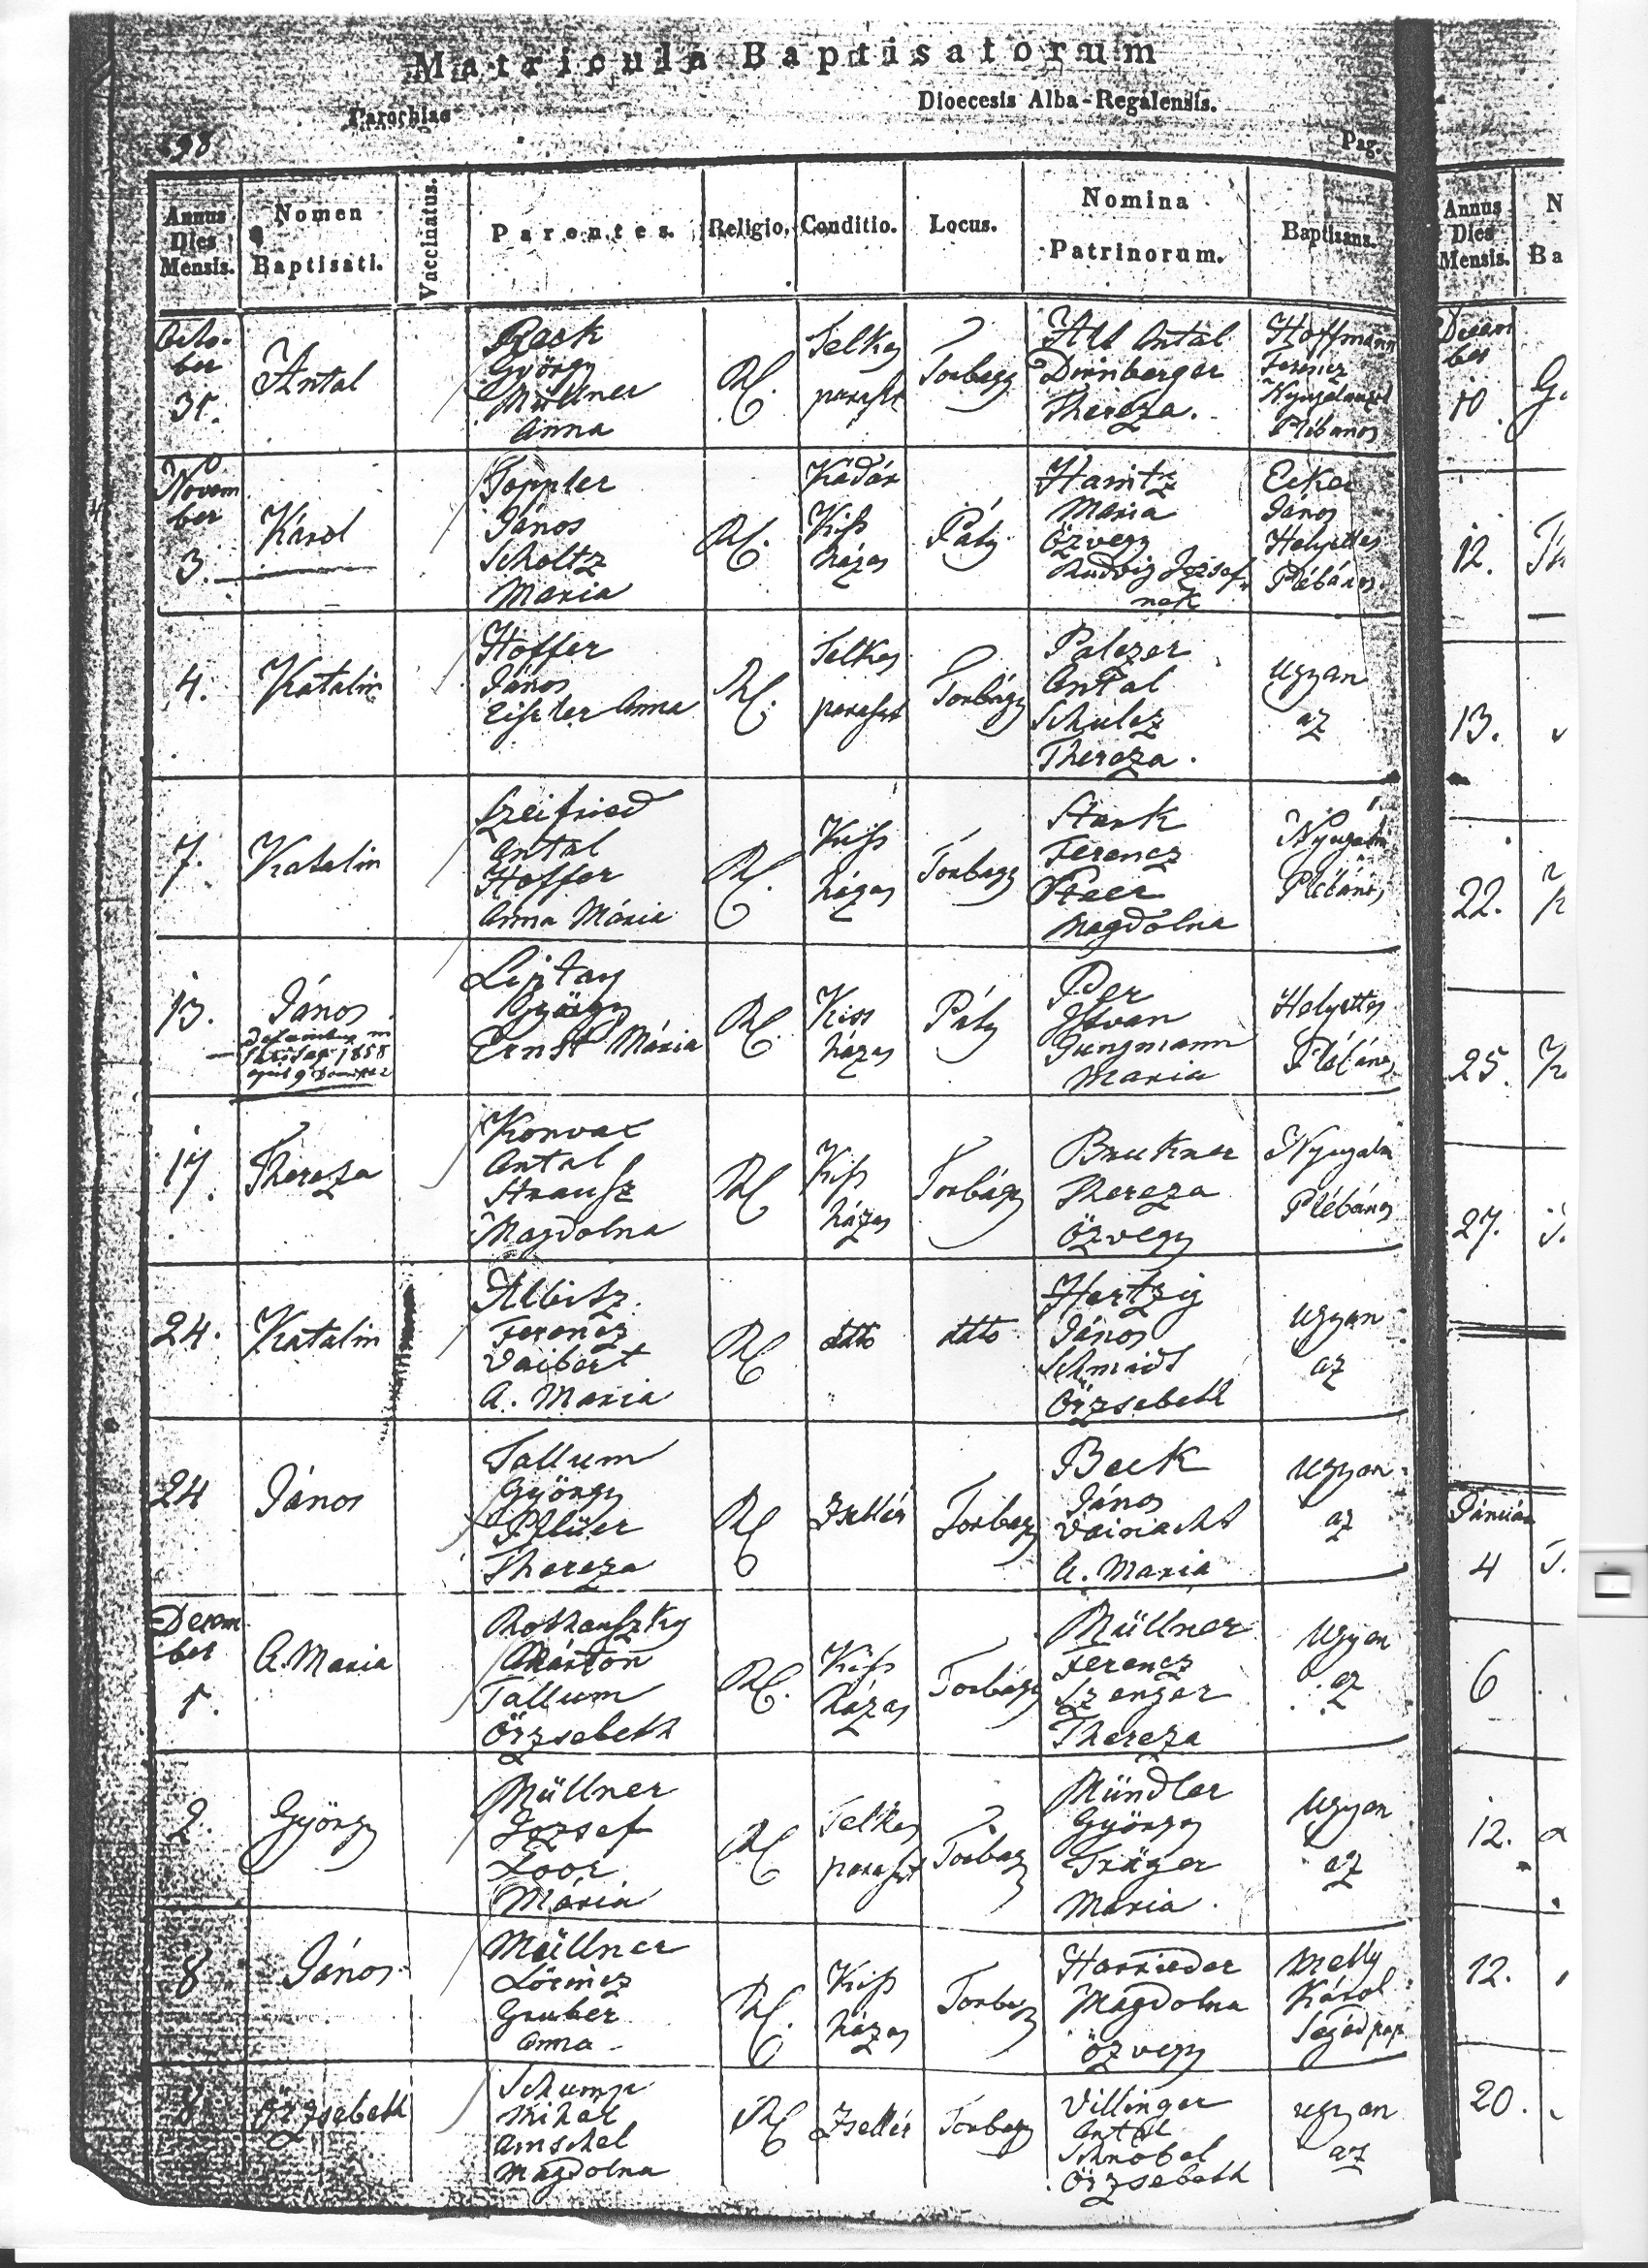 Matricula Baptisatorum
Parochiae
Dioecesis Alba-Regalensis.
Pag.
Annus Dies Mensis.
Nomen Baptisati.
Vaccinatus.
Parentes.
Religio.
Conditio.
Locus.
Nomina Patrinorum.
Baptisans.
Annus
Dies
Mensis.
N
Ba
Octo-
ber
31.
Antal
György
Müllner
Anna
RC.
Telkes
paraszt
Torbagy
Antal
Thereza.
Hoffmann
Ferencz
Plébános
Novem
ber
3.
Károl
Toppler
János
Scholtz
Maria
RC.
Kadár
Kiss
házas
Páty
Hanitz
Maria
Özvegy
Ludvig Jozsef
nek
János
Helyettes
Plébános
4.
Katalin
Hoffer
János
Anna
RC.
Telkes
paraszt
Torbágy
Palczer
Antal
Schulcz
Thereza.
ugyan
az
7.
Katalin
Szeifried
Antal
Hoffer
Anna Mária
RC.
Kiss
házas
Torbagy
Stark
Ferencz
Magdolna
Plébános
13.
János
1858
György
Ernst Mária
RC.
Kiss
házas
Páty
Istvan
Jungmann
Maria
Helyettes
Plébános
17.
Thereza
Antal
Strausz
Magdolna
RC
Kiss
házas
Torbágy
Brukner
Thereza
Özvegy
Plébános
24.
Katalin
Albisz
Ferencz
Vaibert
A. Maria
RC
dtto
dtto
Hertzig
János
Schmidt
Örzsebeth
ugyan
az
24
János
Tallum
György
Thereza
RC
Zsellér
Torbagy
Beck
János
Vainacht
A. Maria
ugyan
az
Decem
ber
1.
A. Maria
Rothauszky
Márton
Tallum
Örzsebeth
RC.
Kiss
házas
Torbágy
Müllner
Ferencz
Szenger
Thereza
ugyan
az
2.
György
Müllner
Jozsef
Loor
Mária
RC
Telkes
paraszt
Torbagy
Mündler
György
Träger
Maria.
ugyan
az
8
János
Müllner
Lörincz
Gruber
Anna
RC.
Kiss
házas
Torbagy
Harrieder
Magdolna
özvegy
Melly
Károl
Segédpap
8
Örzsebeth
Schump
Mihál
Amschel
Magdolna
RC
Zsellér
Torbagy
Villinger
Antal
Schnobel
Örzsebeth
ugyan
az
Decem
ber
10
12.
13.
22.
25.
27.
Január
4
6
12.
12.
20.